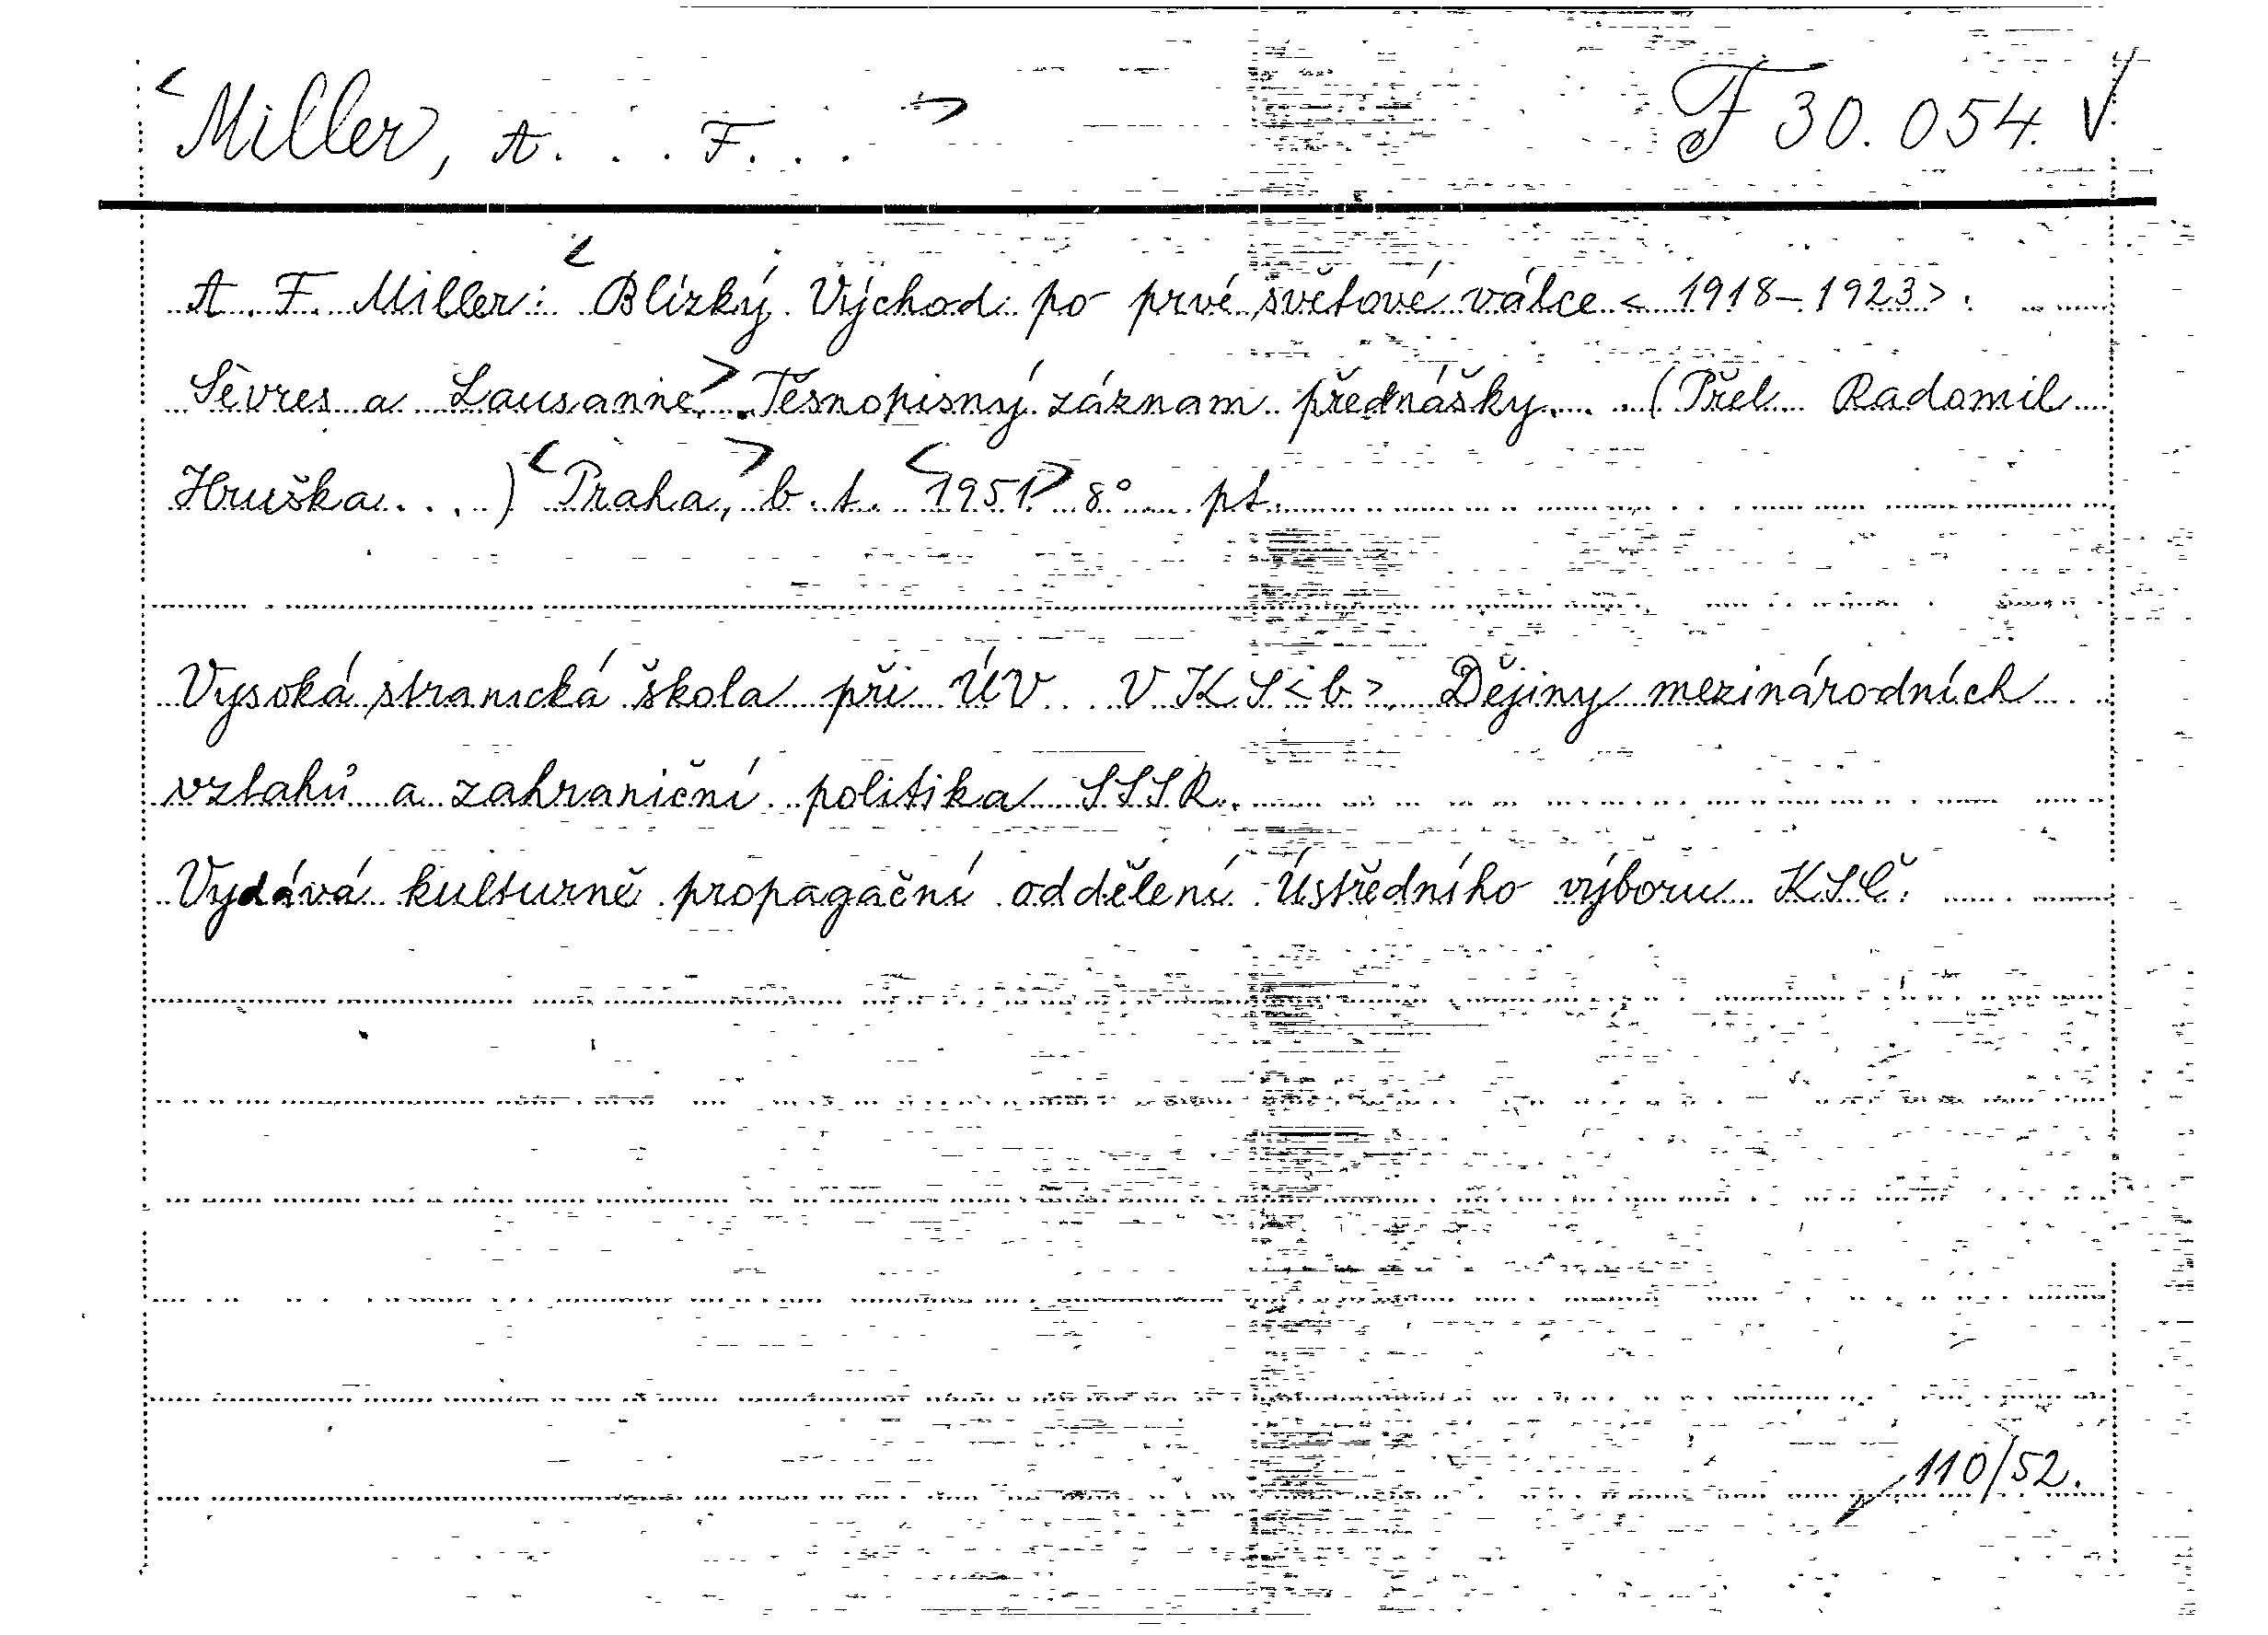 <Miller, A. . . F. . . >
F 30.054. V.
A. F. Miller: <Blízký Východ po prvé světové válce <1918–1923>.
Sèvres a Lausanne.> Těsnopisný záznam přednášky. . . (Přel. Radomil
Hruška. . .) <Praha,> b. t. <1951> 8° pt.
Vysoká stranická škola při ÚV VKS<b>. Dějiny mezinárodních
vztahů a zahraniční politika SSSR.
Vydává kulturně propagační oddělení Ústředního výboru KSČ.
110/52.